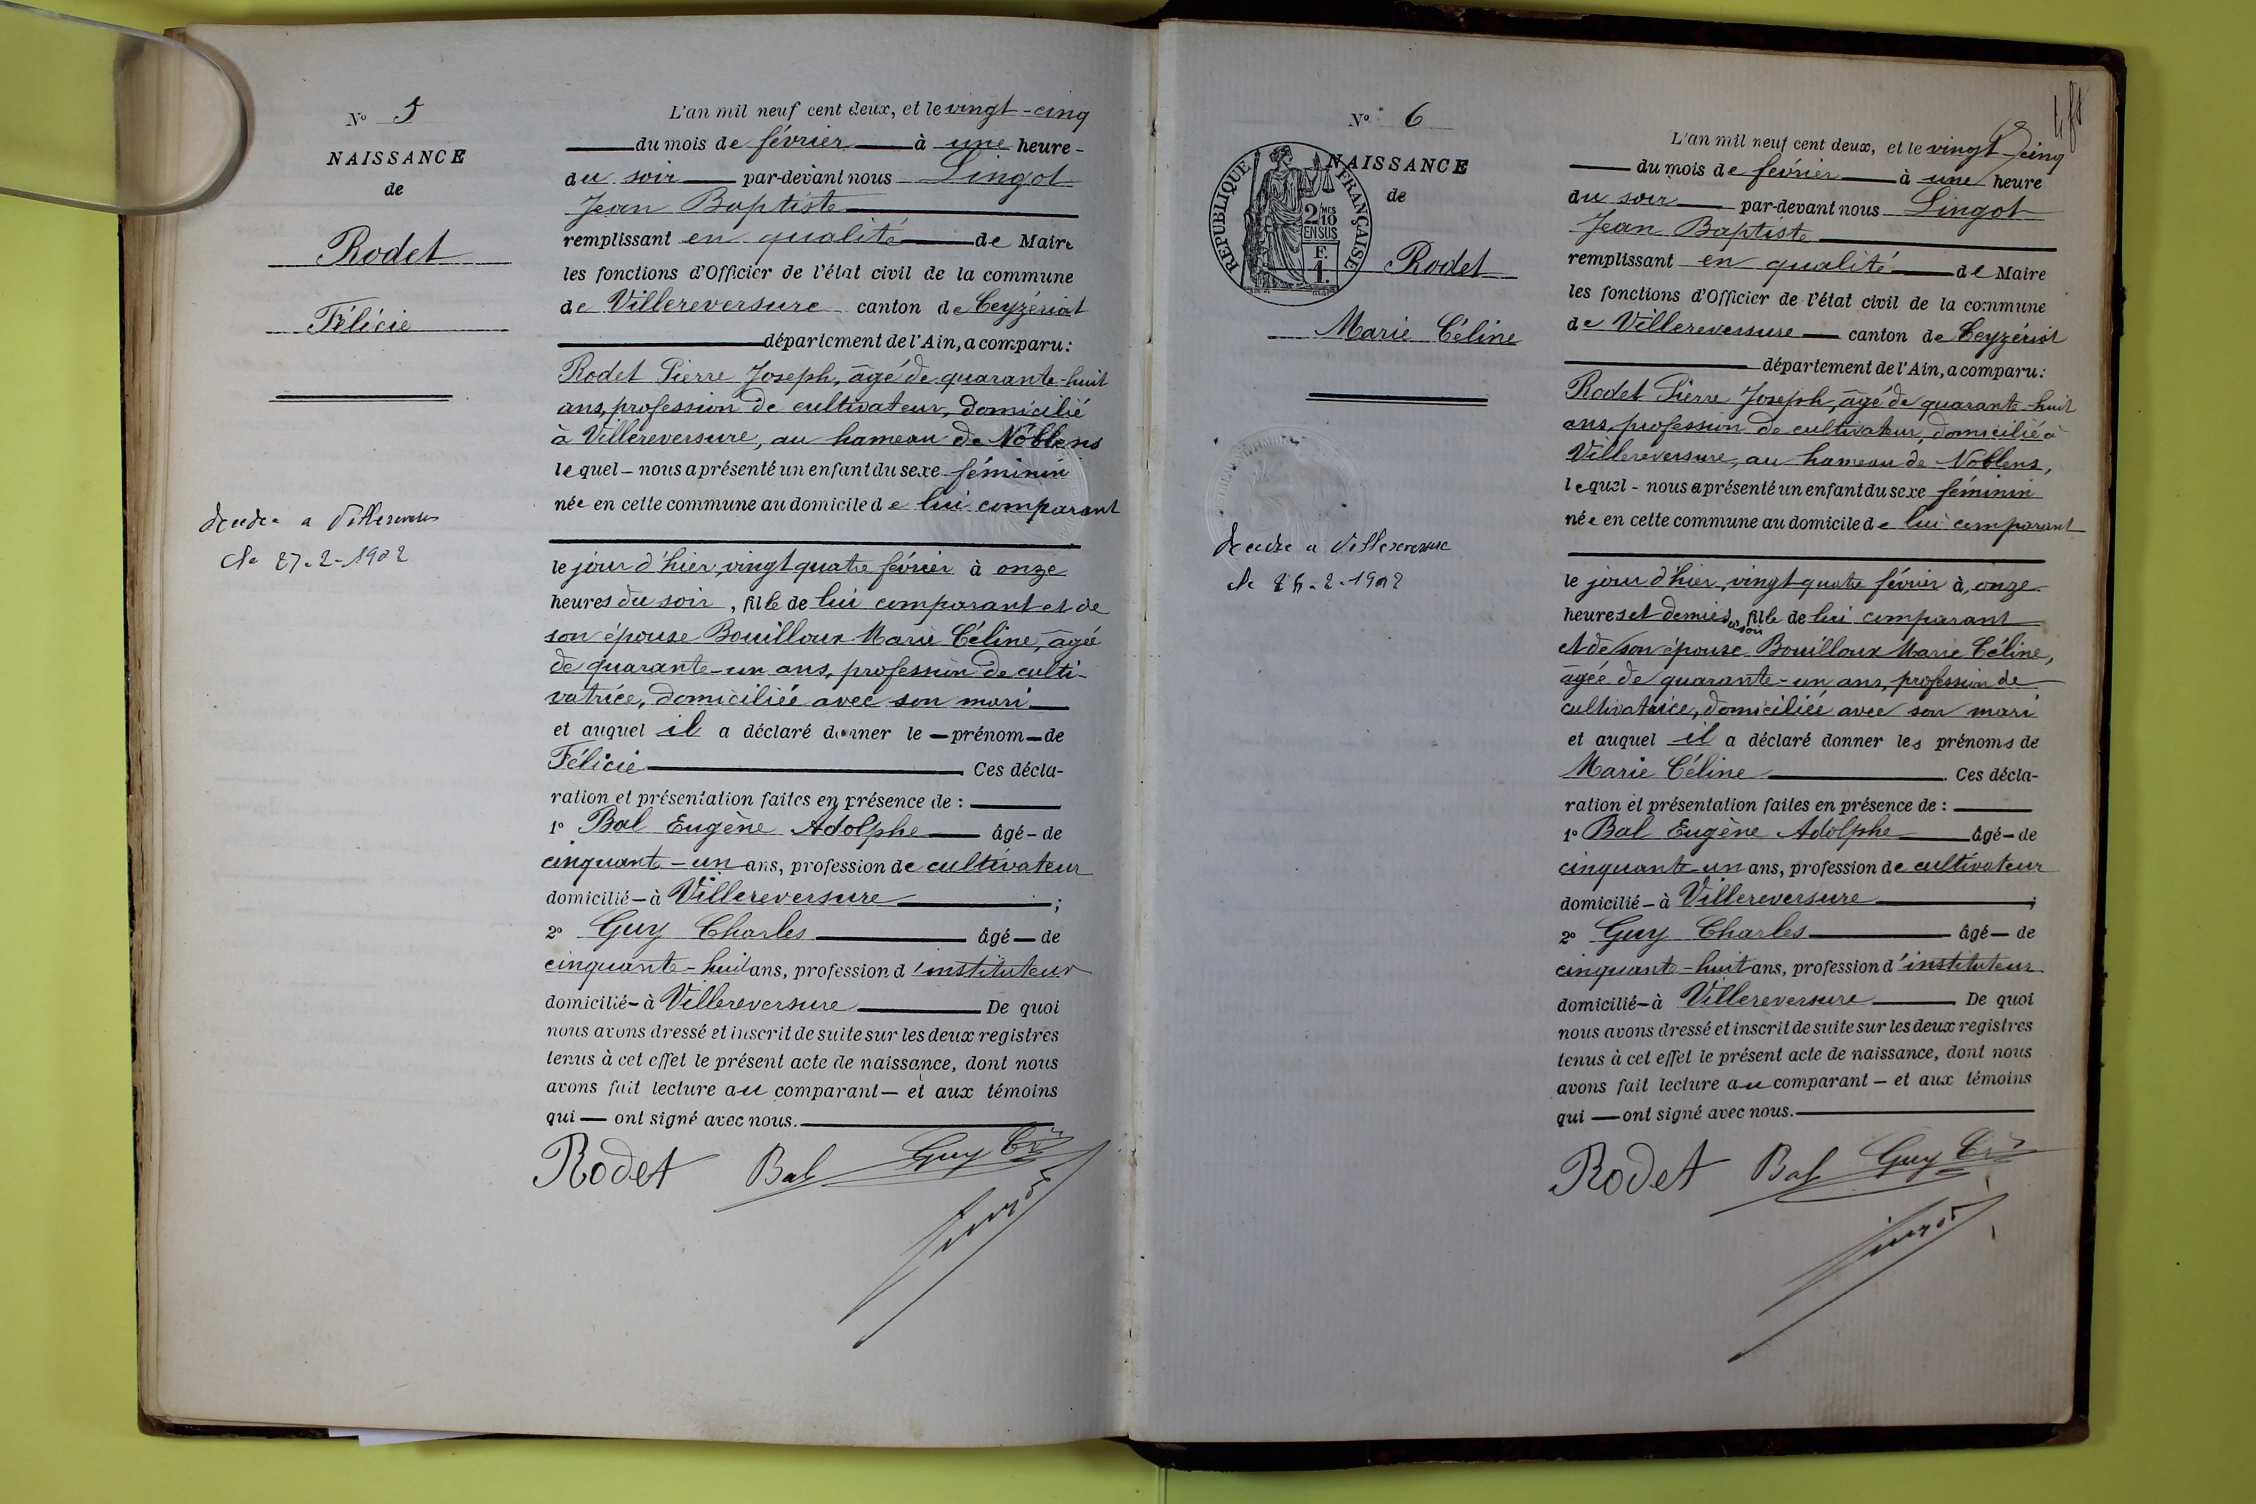 N° 5
NAISSANCE
de
Rodet
Félicie
décédée a Villereversure
le 27-2-1902
L'an mil neuf cent deux, et le vingt-cinq
du mois de février à une heure
du soir par-devant nous Lingot
Jean Baptiste
remplissant en qualité de Maire
les fonctions d'Officier de l'état civil de la commune
de Villereversure canton de Ceyzériat
département de l'Ain, a comparu:
Rodet Pierre Joseph, âgé de quarante-huit
ans, profession de cultivateur, domicilié
à Villereversure, au hameau de Noblens
lequel - nous a présenté un enfant du sexe féminin
née en cette commune au domicile de lui comparant
le jour d'hier, vingt quatre février à onze
heures du soir, fille de lui comparant et de
son épouse Bouilloux Marie Céline, âgée
de quarante-un ans, profession de culti-
vatrice, domiciliée avec son mari
et auquel il a déclaré donner le — prénom — de
Félicie Ces décla-
ration et présentation faites en présence de :
1° Bal Eugène Adolphe âgé - de
cinquante-un ans, profession de cultivateur
domicilié - à Villereversure ;
2° Guy Charles âgé — de
cinquante-huit ans, profession d'instituteur
domicilié - à Villereversure De quoi
nous avons dressé et inscrit de suite sur les deux registres
tenus à cet effet le présent acte de naissance, dont nous
avons fait lecture au comparant — et aux témoins
qui — ont signé avec nous.
Rodet Bal Guy Ch
Lingot
4
N° 6
NAISSANCE
de
RÉPUBLIQUE FRANÇAISE
2/10 MES
EN SUS
F.
1.
Rodet
Marie Céline
décédée a Villereversure
le 2-1902
L'an mil neuf cent deux, et le vingt-cinq
du mois de février à une heure
du soir par-devant nous Lingot
Jean Baptiste
remplissant en qualité de Maire
les fonctions d'Officier de l'état civil de la commune
de Villereversure canton de Ceyzériat
département de l'Ain, a comparu:
Rodet Pierre Joseph, âgé de quarante-huit
ans, profession de cultivateur, domicilié à
Villereversure, au hameau de Noblens,
lequel - nous a présenté un enfant du sexe féminin
née en cette commune au domicile de lui comparant
le jour d'hier, vingt-quatre février à onze
heures et demie du soir, fille de lui comparant
et de son épouse Bouilloux Marie Céline,
âgée de quarante-un ans, profession de
cultivatrice, domiciliée avec son mari
et auquel il a déclaré donner les prénoms de
Marie Céline Ces décla-
ration et présentation faites en présence de :
1° Bal Eugène Adolphe âgé - de
cinquante un ans, profession de cultivateur
domicilié - à Villereversure ;
2° Guy Charles âgé — de
cinquante-huit ans, profession d'instituteur
domicilié - à Villereversure De quoi
nous avons dressé et inscrit de suite sur les deux registres
tenus à cet effet le présent acte de naissance, dont nous
avons fait lecture au comparant — et aux témoins
qui — ont signé avec nous.
Rodet Bal Guy Ch
Lingot